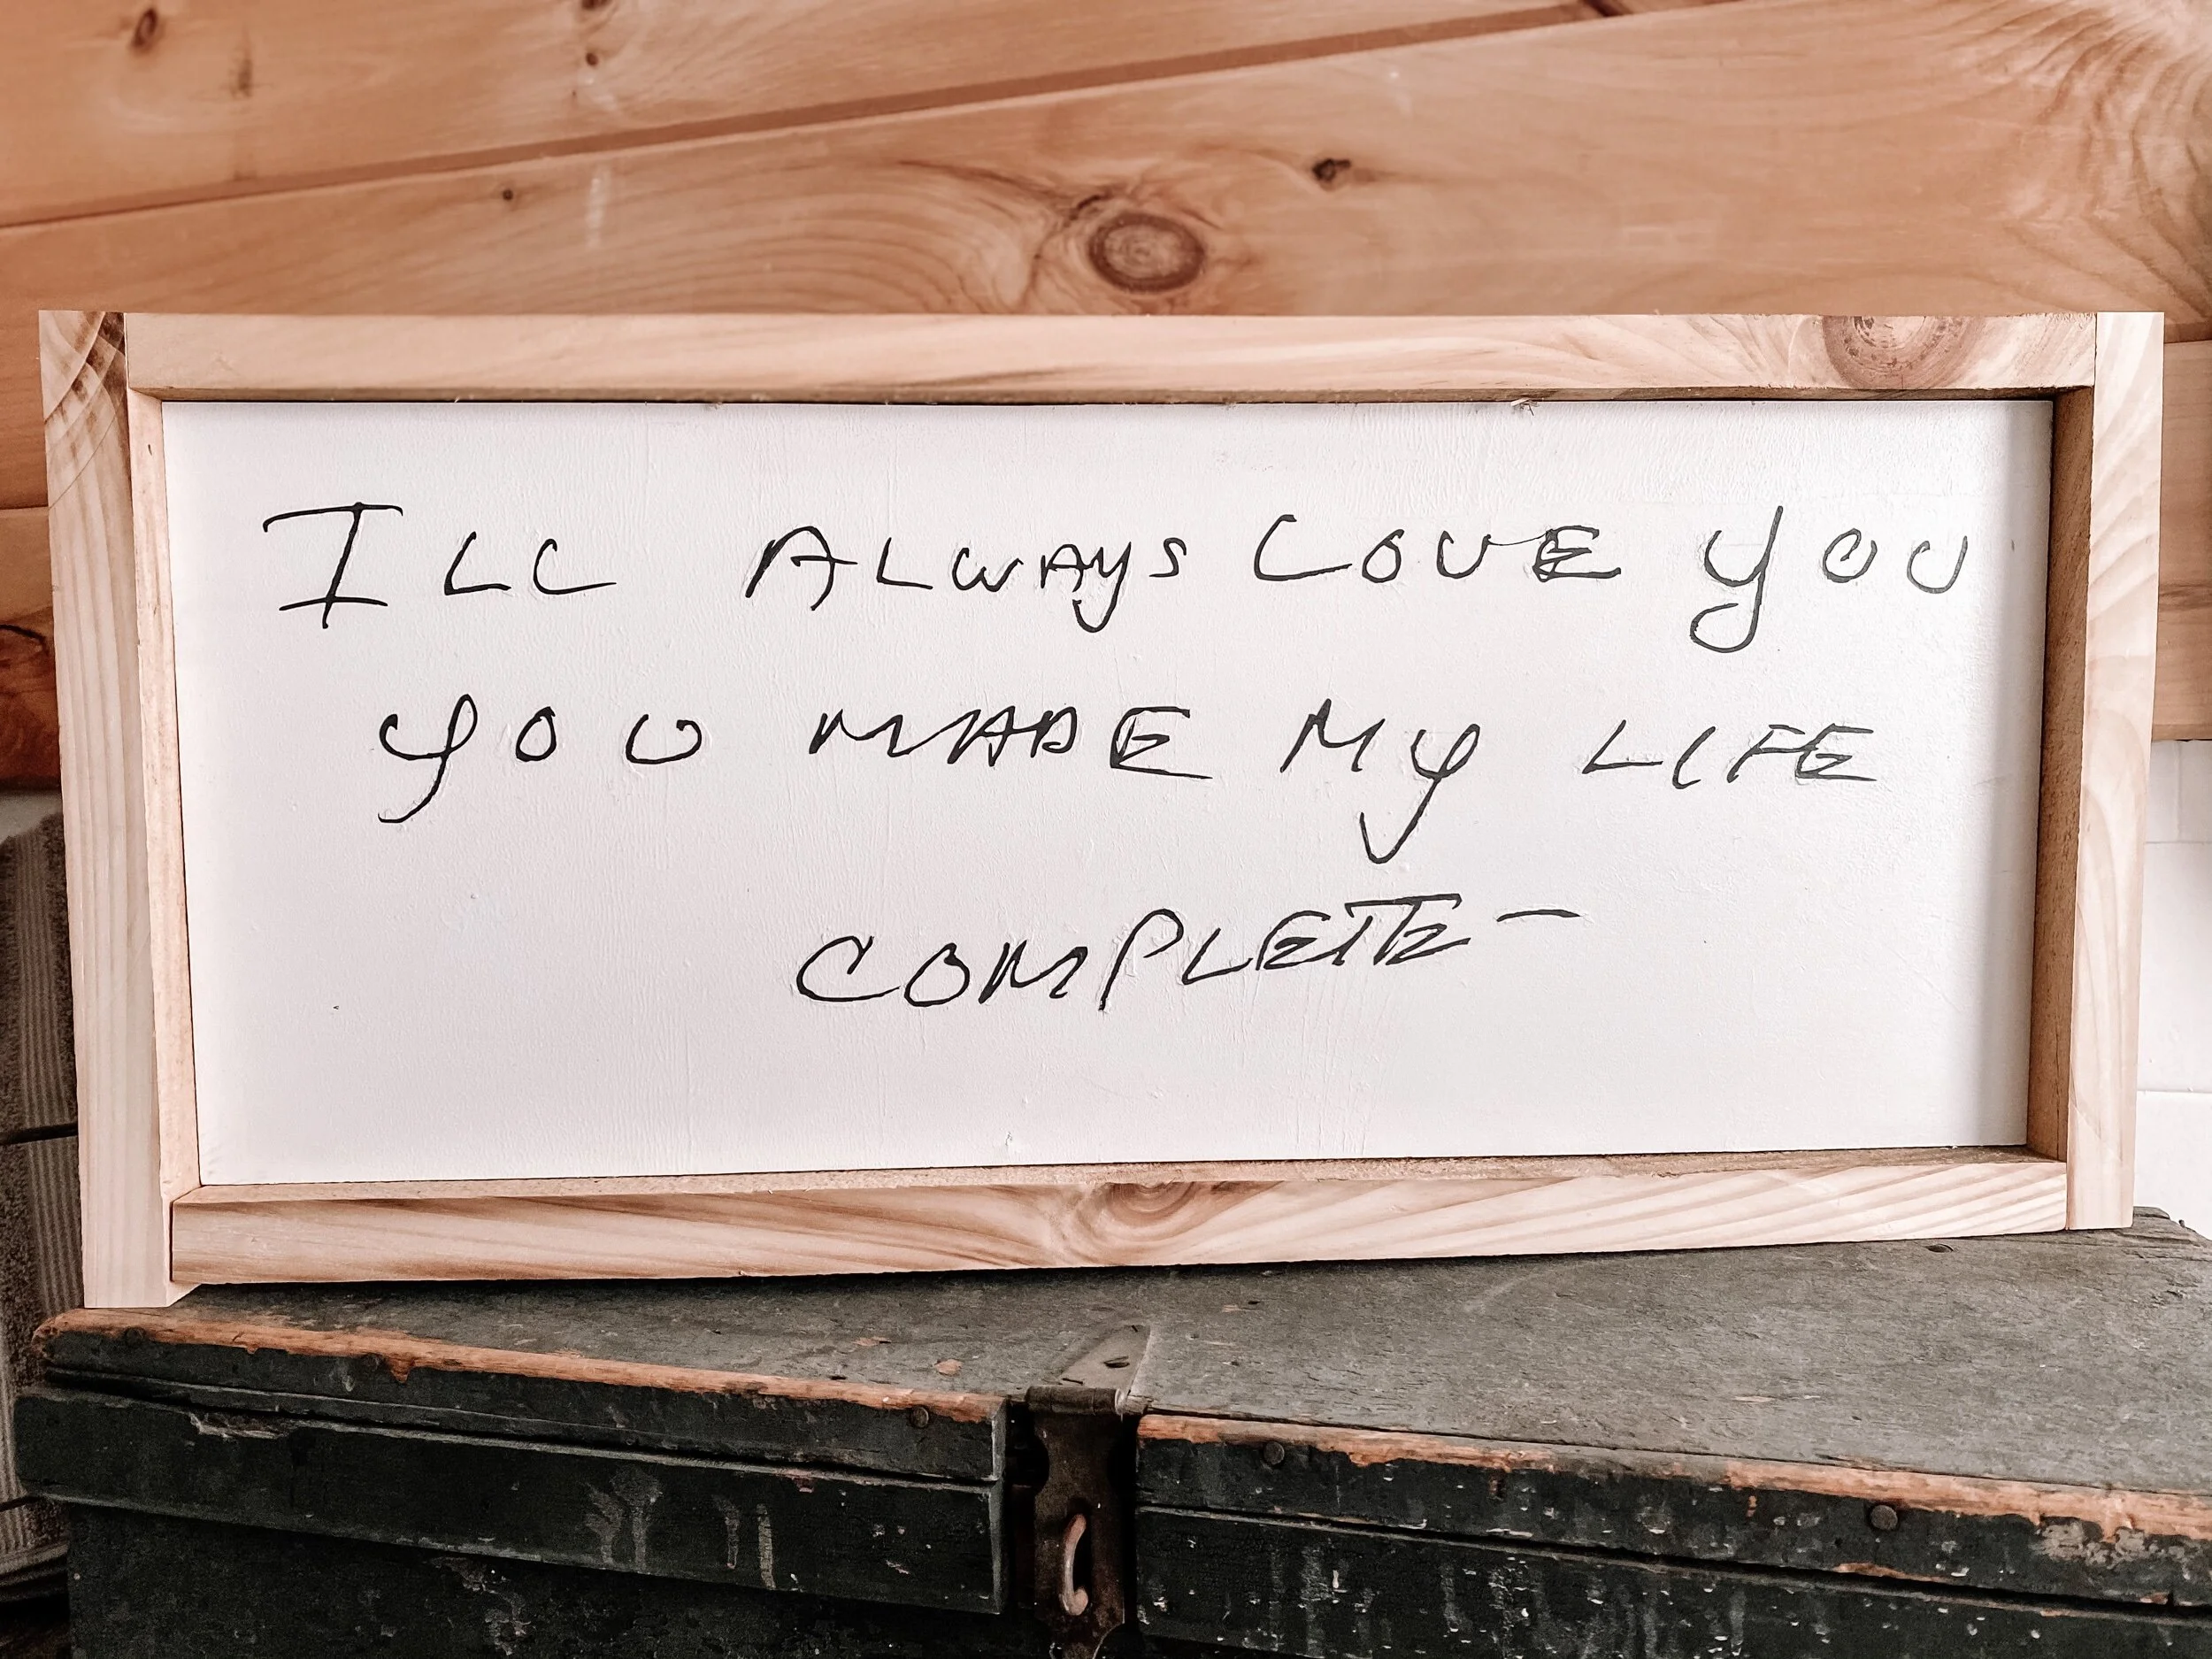 ILL ALWAYS LOVE YOU
YOU MADE MY LIFE
COMPLETE-